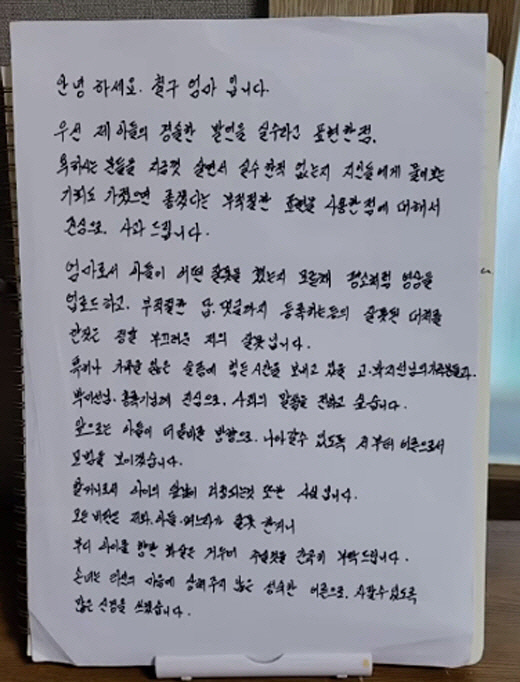 안녕 하세요. 철구 엄마 입니다.
우선 제 아들의 경솔한 발언을 실수라고 표현한점,
욕하시는 분들을 지금껏 살면서 실수 한적 없는지 자신들에게 물어보는
기회도 가졌으면 좋겠다는 부적절한 표현을 사용한점에 대해서
진심으로, 사과 드립니다.
엄마로서 아들이 어떤 잘못을 했는지 모른채 평소처럼 영상을
업로드하고, 부적절한 답.댓글까지 등록하는등의 잘못된 대처를
한것은 정말 부끄러운 저의 잘못 입니다.
특히나 가족을 잃은 슬픔에 힘든시간을 보내고 있을 고.박지선님의가족분들과.
박미선님, 홍록기님께 진심으로, 사죄의 말씀을 전하고 싶습니다.
앞으로는 아들이 더 올바른 방향으로, 나아갈수 있도록 저부터 어른으로서
모범을 보이겠습니다.
할머니로서 아이의 앞날이 걱정되는것 또한 사실 입니다.
모든 비난은 저와.아들.며느리가 잘못 한거니
부디 아이를 향한 화살은 거두어 주실것을 간곡히 부탁드립니다.
손녀는 타인의 마음에 상처주지 않은 성숙한 어른으로, 자랄수있도록
많은 신경을 쓰겠습니다.